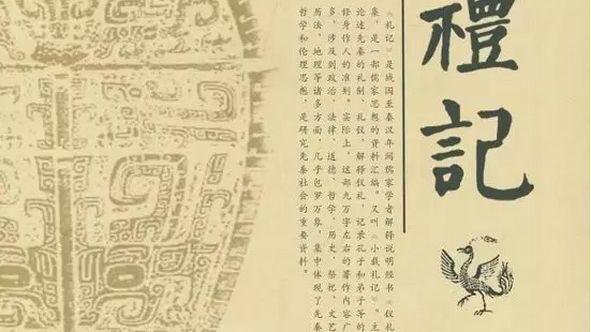 禮記
《礼记》是战国至秦汉年间儒家学者解释说明经书《仪礼
集，是一部儒家思想的资料汇编。又叫《小戴礼记》。主
论述先秦的礼制、礼仪，解释仪礼，记录孔子和弟子等的
修身作人的准则。实际上，这部九万字左右的著作内容广
多，涉及到政治、法律、道德、哲学、历史、祭祀、文艺
历法、地理等诸多方面，几乎包罗万象，集中体现了先秦
哲学和伦理思想，是研究先秦社会的重要资料。